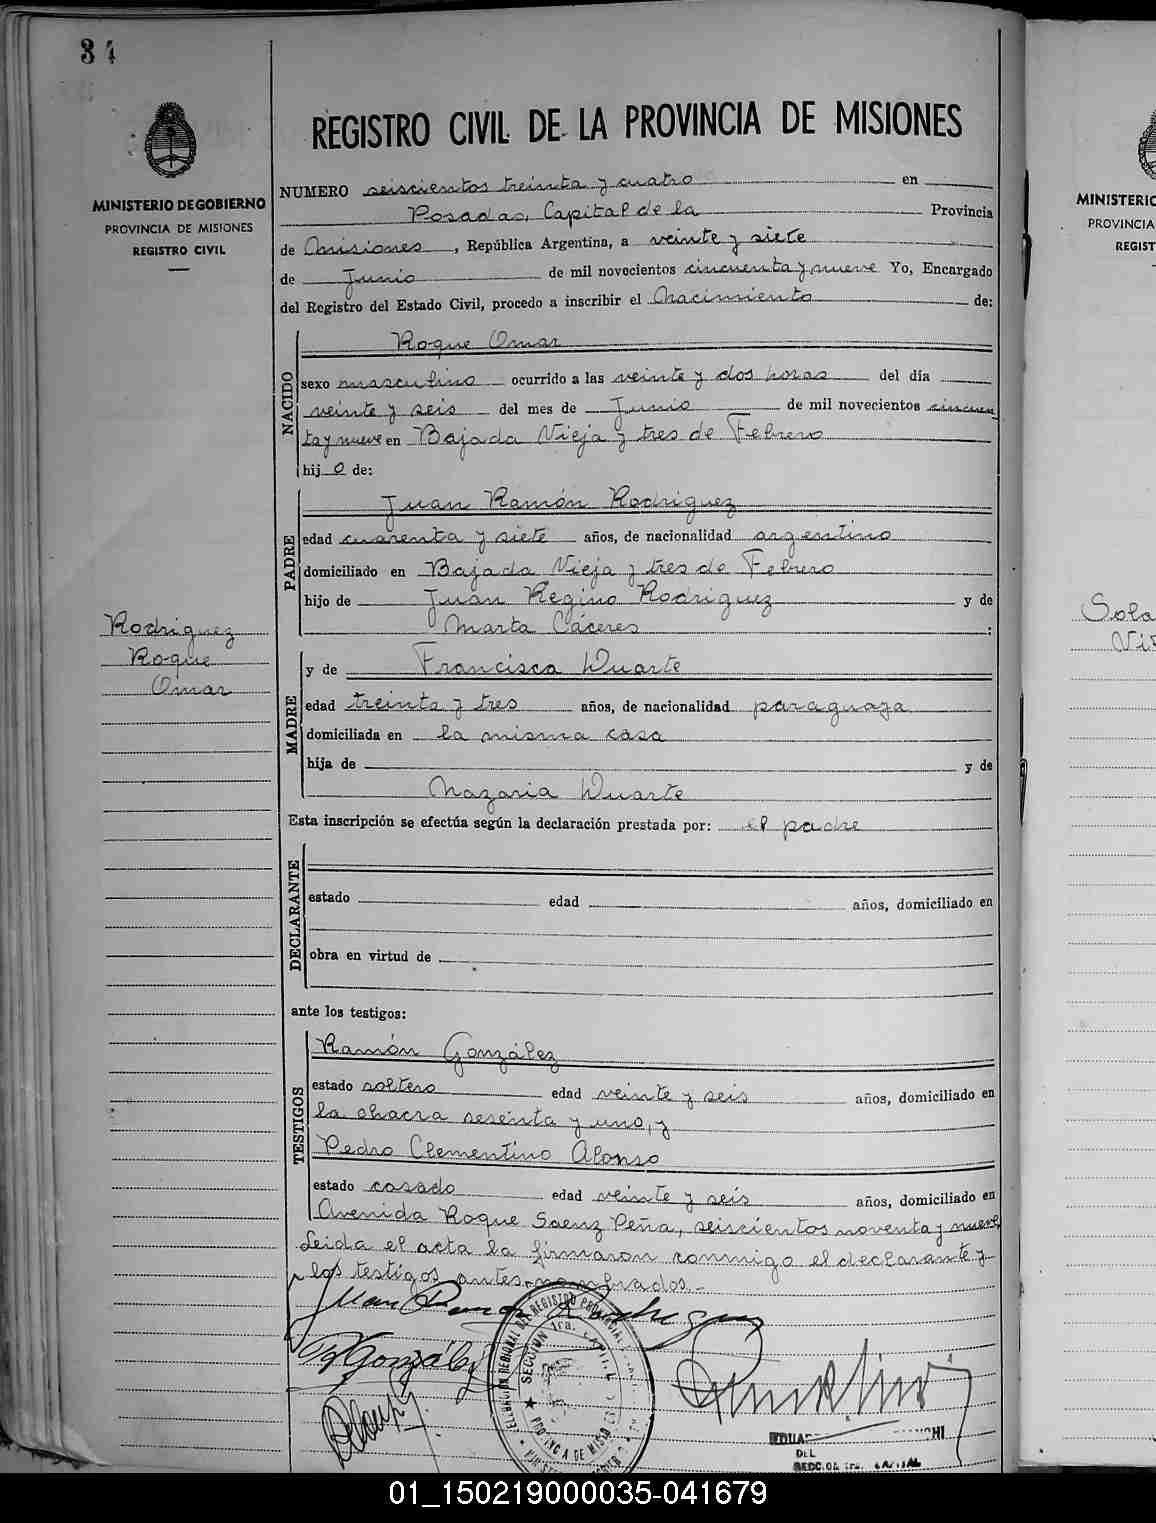 34
MINISTERIO DE GOBIERNO
PROVINCIA DE MISIONES
REGISTRO CIVIL
Rodriguez
Roque
Omar
REGISTRO CIVIL DE LA PROVINCIA DE MISIONES
NUMERO seiscientos treinta y cuatro en
Posadas, Capital de la Provincia
de Misiones, República Argentina, a veinte y siete
de Junio de mil novecientos cincuenta y nueve Yo, Encargado
del Registro del Estado Civil, procedo a inscribir el Nacimiento de:
NACIDO
Roque Omar
sexo masculino ocurrido a las veinte y dos horas del día
veinte y seis del mes de Junio de mil novecientos cincuen
ta y nueve en Bajada Vieja y tres de Febrero
hij o de:
PADRE
Juan Ramón Rodriguez
edad cuarenta y siete años, de nacionalidad argentino
domiciliado en Bajada Vieja y tres de Febrero
hijo de Juan Regino Rodriguez y de
Marta Cáceres :
MADRE
y de Francisca Duarte
edad treinta y tres años, de nacionalidad paraguaya
domiciliada en la misma casa
hija de y de
Nazaria Duarte
Esta inscripción se efectúa según la declaración prestada por: el padre
DECLARANTE
estado edad años, domiciliado en
obra en virtud de
ante los testigos:
TESTIGOS
Ramón González
estado soltero edad veinte y seis años, domiciliado en
la chacra sesenta y uno, y
Pedro Clementino Alonso
estado casado edad veinte y seis años, domiciliado en
Avenida Roque Saenz Peña, seiscientos noventa y nueve
Leida el acta la firmaron conmigo el declarante y
los testigos antes nombrados.-
Juan Ramon Rodriguez
R González
SECCION 1ra.
PROVINCIA DE MISIONES
DEL
SECCION 1ra. CAPITAL
MINISTERIO
PROVINCIA
REGIST
Sola
01_150219000035-041679